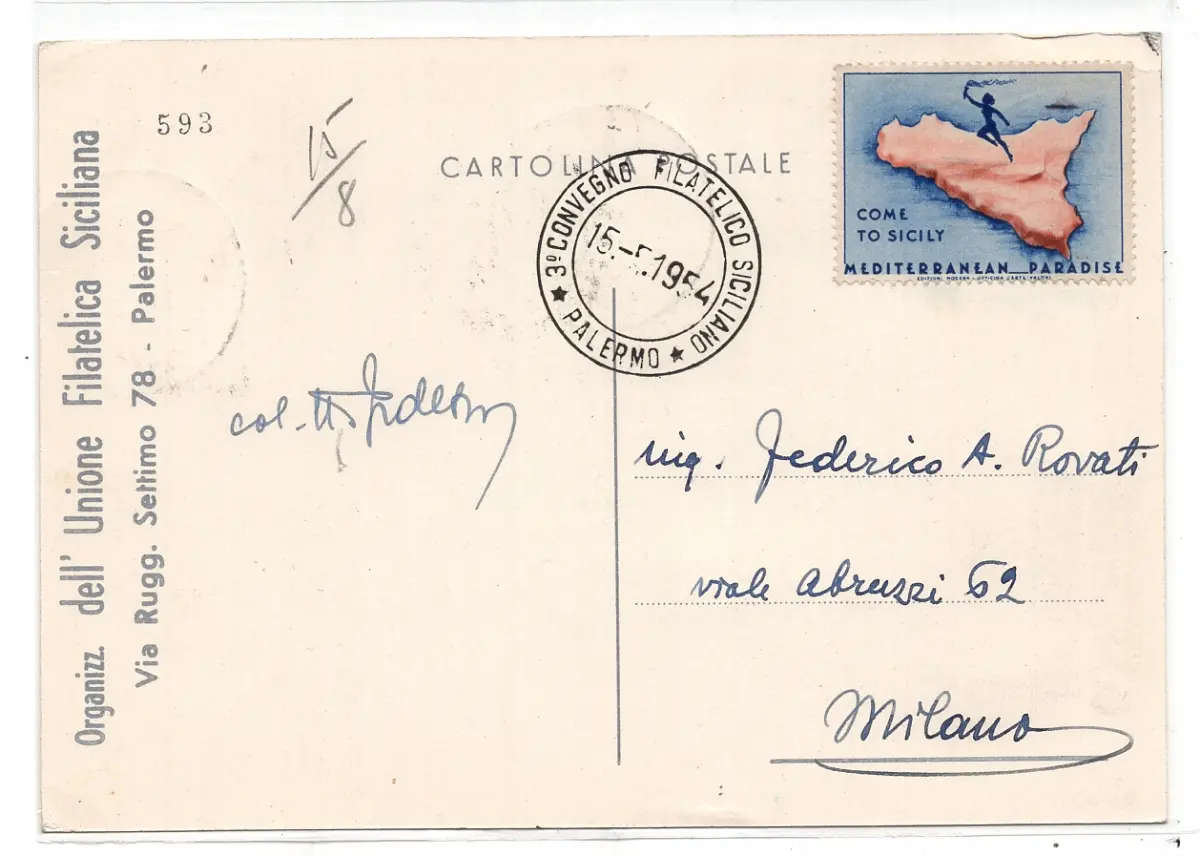 Organizz. dell' Unione Filatelica Siciliana
Via Rugg. Settimo 78 - Palermo
593
15/8
CARTOLINA POSTALE
3º CONVEGNO FILATELICO SICILIANO
15.-5.1954
★ PALERMO ★
COME
TO SICILY
MEDITERRANEAN PARADISE
col.
ing. Federico A. Rovati
viale Abruzzi 62
Milano